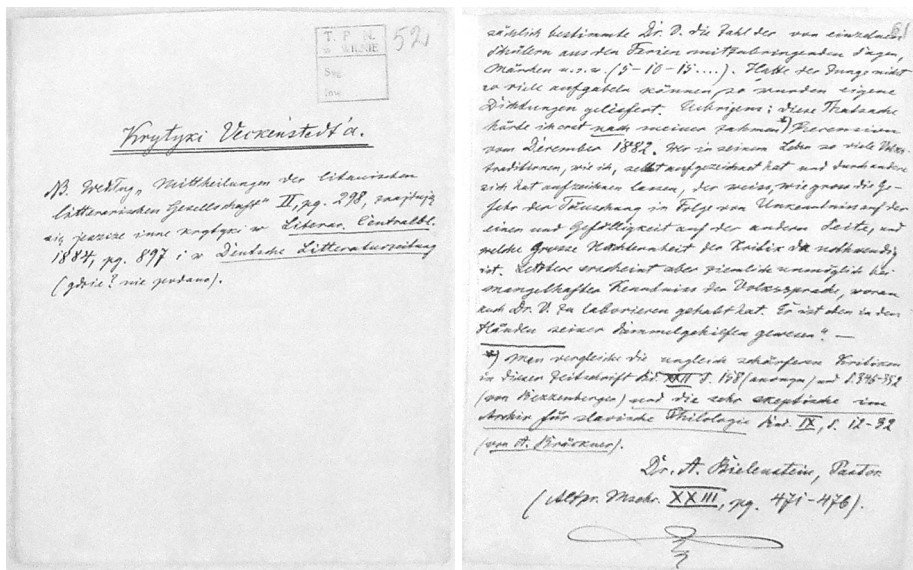 T. P. N.
w WILNIE
Syg
Inw.
52
Krytyki Veckenstedt'a.
NB. Według „Mittheilungen der litauischen
litterarischen Gesellschaft" II, pg. 298, znajdują
się jeszcze inne krytyki w Literar. Centralbl.
1884, pg. 897 i w Deutsche Litteraturzeitung
(gdzie? nie podano).
61
sächlich bestimmte Dr. V. die Zahl der von einzelnen
Schülern aus den Ferien mitzubringenden Sagen,
Märchen u.s.w. (5-10-15....). Hatte der Junge nicht
so viele aufgabeln können, so wurden eigene
Dichtungen geliefert. Uebrigens: diese Thatsache
hörte ich erst nach meiner zahmen *) Recension
vom December 1882. Wer in seinem Leben so viele Volks-
traditionen, wie ich, selbst aufgezeichnet hat und durch andere
sich hat aufzeichnen lassen, der weiss, wie gross die Ge-
fahr der Täuschung in Folge von Unkenntniss auf der
einen und Gefälligkeit auf der andern Seite, und
welche grosse Nüchternheit der Kritik da nothwendig
ist. Letztere erscheint aber ziemlich unmöglich bei
mangelhafter Kenntniss der Volkssprache, woran
auch Dr. V. zu laborieren gehabt hat. Er ist eben in den
Händen seiner Sammelgehilfen gewesen". —
*) Man vergleiche die ungleich schärferen Kritiken
in dieser Zeitschrift Bd. XXII S. 158 (anonym) und S. 345-352
(von Bezzenberger) und die sehr skeptische im
Archiv für slavische Philologie Bnd. IX, S. 12-32
(von A. Brückner).
Dr. A. Bielenstein, Pastor
(Altpr. Mschr. XXIII, pg. 471-476).